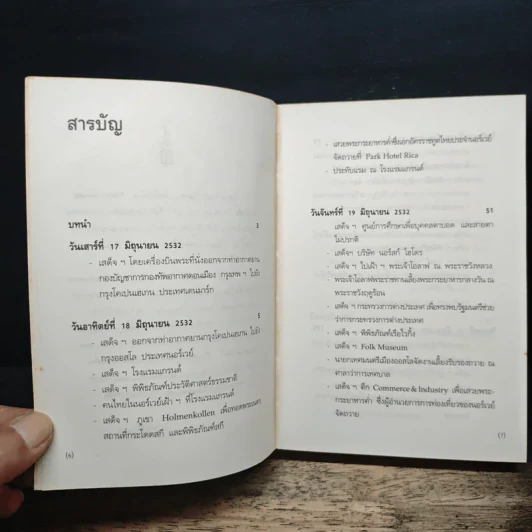 สารบัญ
บทนำ 3
วันเสาร์ที่ 17 มิถุนายน 2532
- เสด็จ ฯ โดยเครื่องบินพระที่นั่งออกจากท่าอากาศยาน
กองบัญชาการกองทัพอากาศดอนเมือง กรุงเทพ ฯ ไปยัง
กรุงโคเปนเฮเกน ประเทศเดนมาร์ก
วันอาทิตย์ที่ 18 มิถุนายน 2532 5
- เสด็จ ฯ ออกจากท่าอากาศยานกรุงโคเปนเฮเกน ไปยัง
กรุงออสโล ประเทศนอร์เวย์
- เสด็จ ฯ โรงแรมแกรนด์
- เสด็จ ฯ พิพิธภัณฑ์ประวัติศาสตร์ธรรมชาติ
- คนไทยในนอร์เวย์เฝ้า ฯ ที่โรงแรมแกรนด์
- เสด็จ ฯ ภูเขา Holmenkollen เพื่อทอดพระเนตร
สถานที่กระโดดสกี และพิพิธภัณฑ์สกี
(6)
- เสวยพระกระยาหารค่ำซึ่งเอกอัครราชทูตไทยประจำนอร์เวย์
จัดถวายที่ Park Hotel Rica
- ประทับแรม ณ โรงแรมแกรนด์
วันจันทร์ที่ 19 มิถุนายน 2532 51
- เสด็จ ฯ ศูนย์การศึกษาเพื่อบุคคลตาบอด และสายตา
ไม่ปรกติ
- เสด็จ ฯ บริษัท นอร์สก์ ไฮโดร
- เสด็จ ฯ ไปเฝ้า ฯ พระเจ้าโอลาฟ ณ พระราชวังหลวง
พระเจ้าโอลาฟพระราชทานเลี้ยงพระกระยาหารกลางวัน ณ
พระราชวังฤดูร้อน
- เสด็จ ฯ กระทรวงการต่างประเทศ เพื่อทรงพบรัฐมนตรีช่วย
ว่าการกระทรวงการต่างประเทศ
- เสด็จ ฯ พิพิธภัณฑ์เรือไวกิ้ง
- เสด็จ ฯ Folk Museum
- นายกเทศมนตรีเมืองออสโลจัดงานเลี้ยงรับรองถวาย ณ
ศาลาว่าการเทศบาล
- เสด็จ ฯ ตึก Commerce & Industry เพื่อเสวยพระ-
กระยาหารค่ำ ซึ่งผู้อำนวยการการท่องเที่ยวของนอร์เวย์
จัดถวาย
(7)